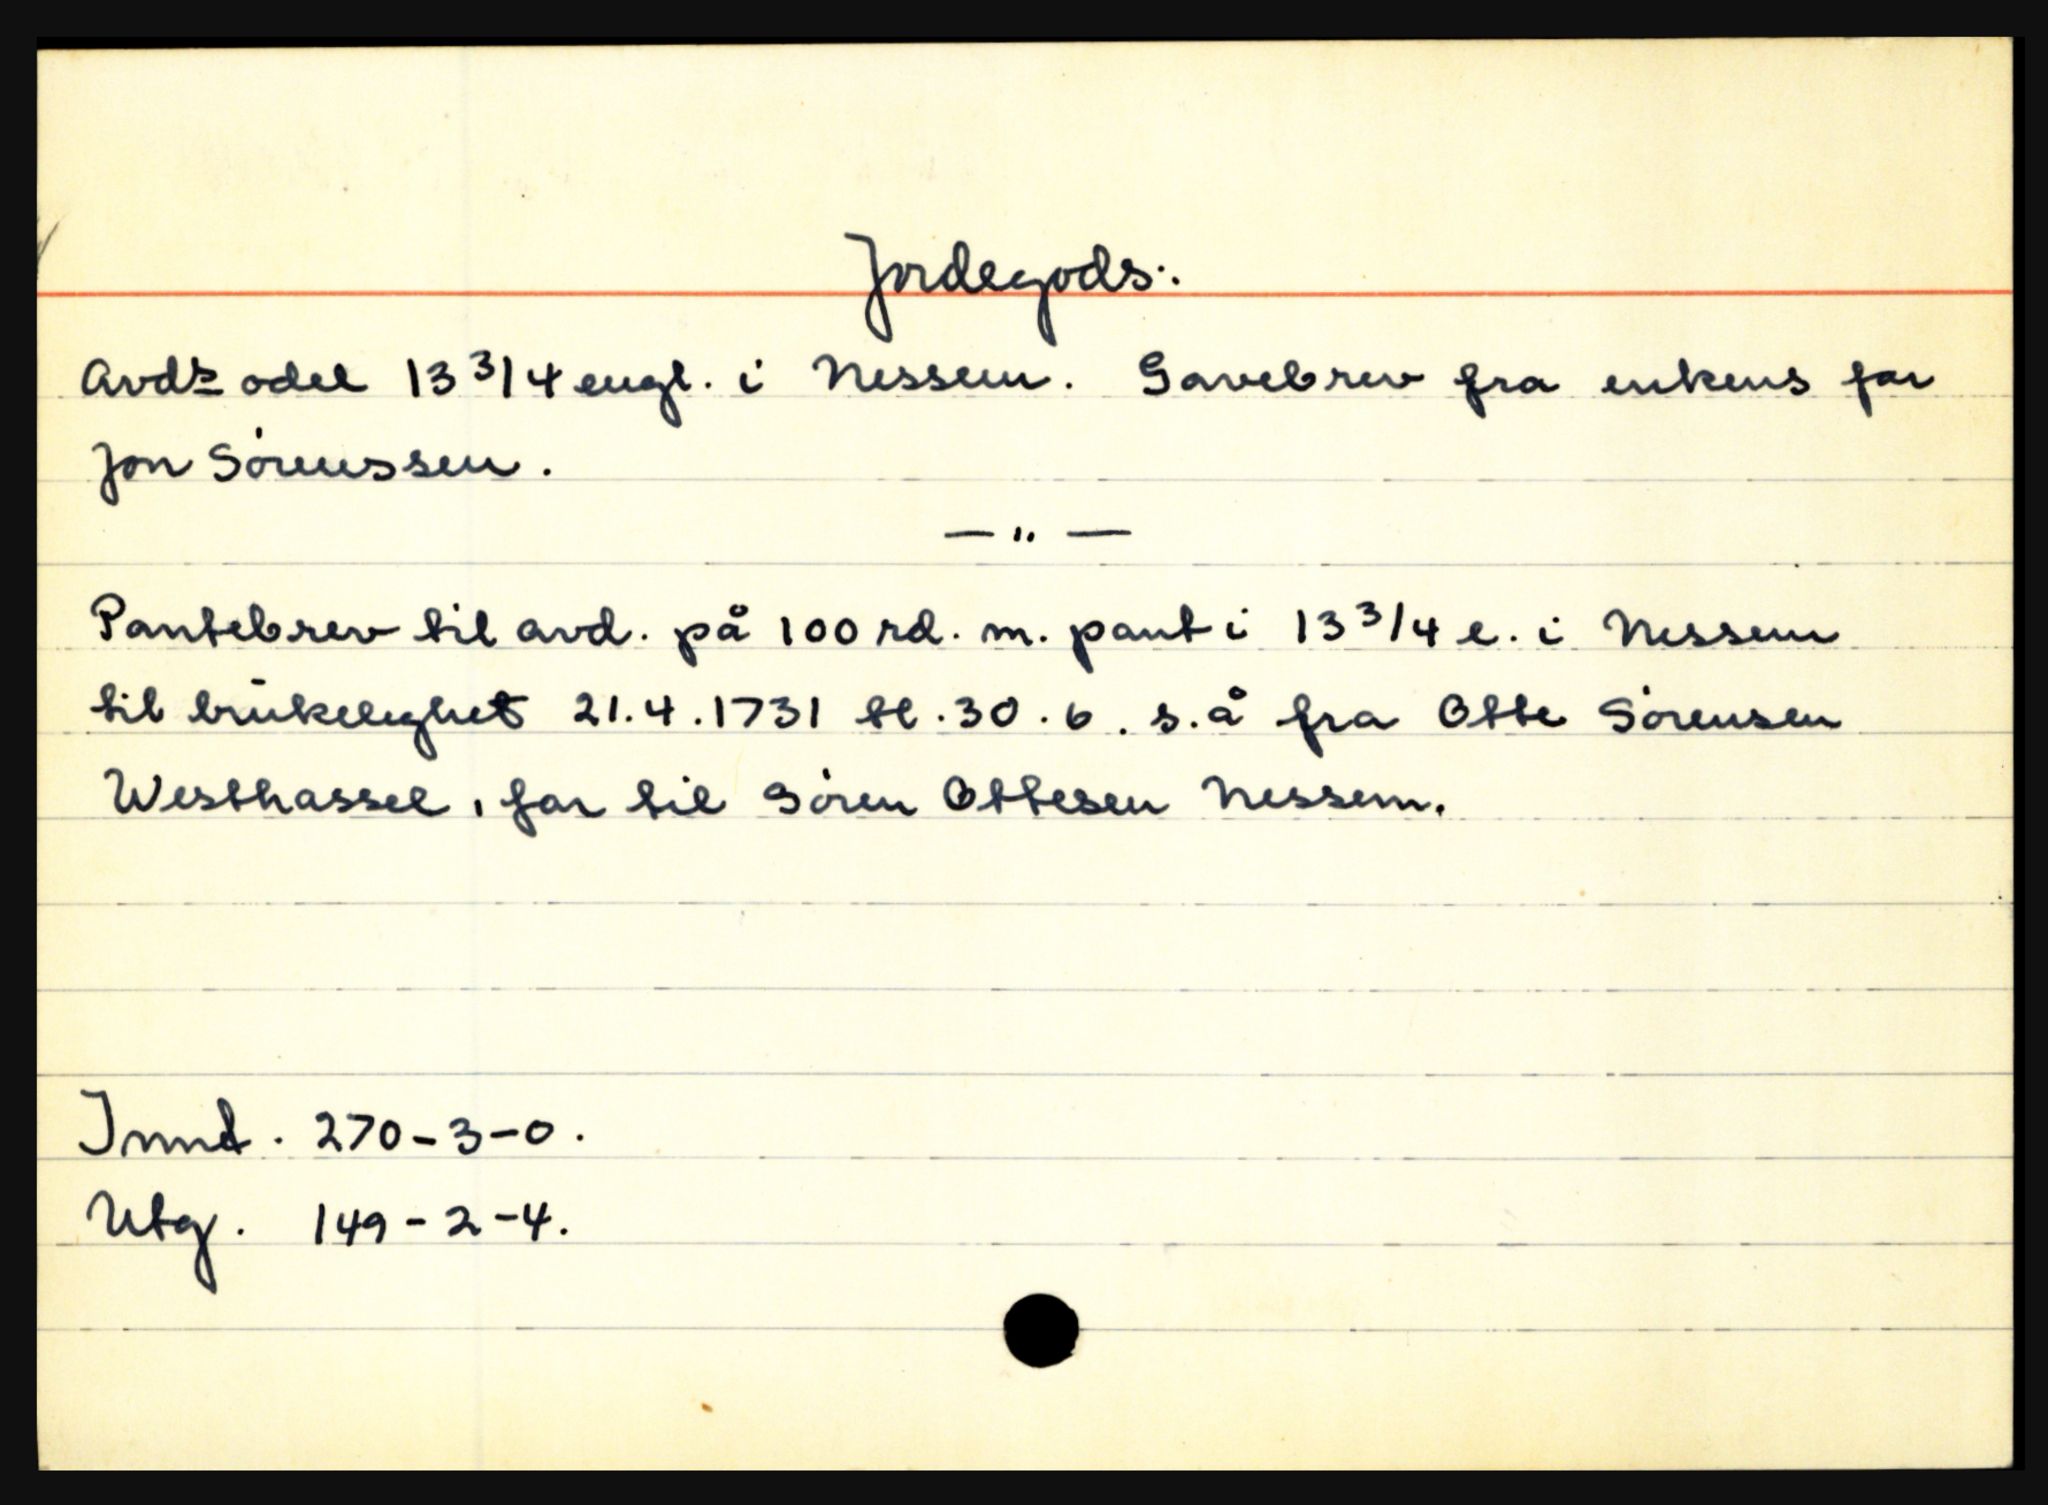 Jordegods:
Avds odel 13 3/4 engl. i Nessem. Gavebrev fra enkens far
Jon Sörenssen.
— " —
Pantebrev til avd. på 100 rd. m. pant i 13 3/4 e. i Nessem
til brukelighet 21.4.1731 tl. 30.6. s.å fra Otte Sörensen
Westhassel, far til Sören Ottesen Nessem.
Innt. 270-3-0.
Utg. 149-2-4.